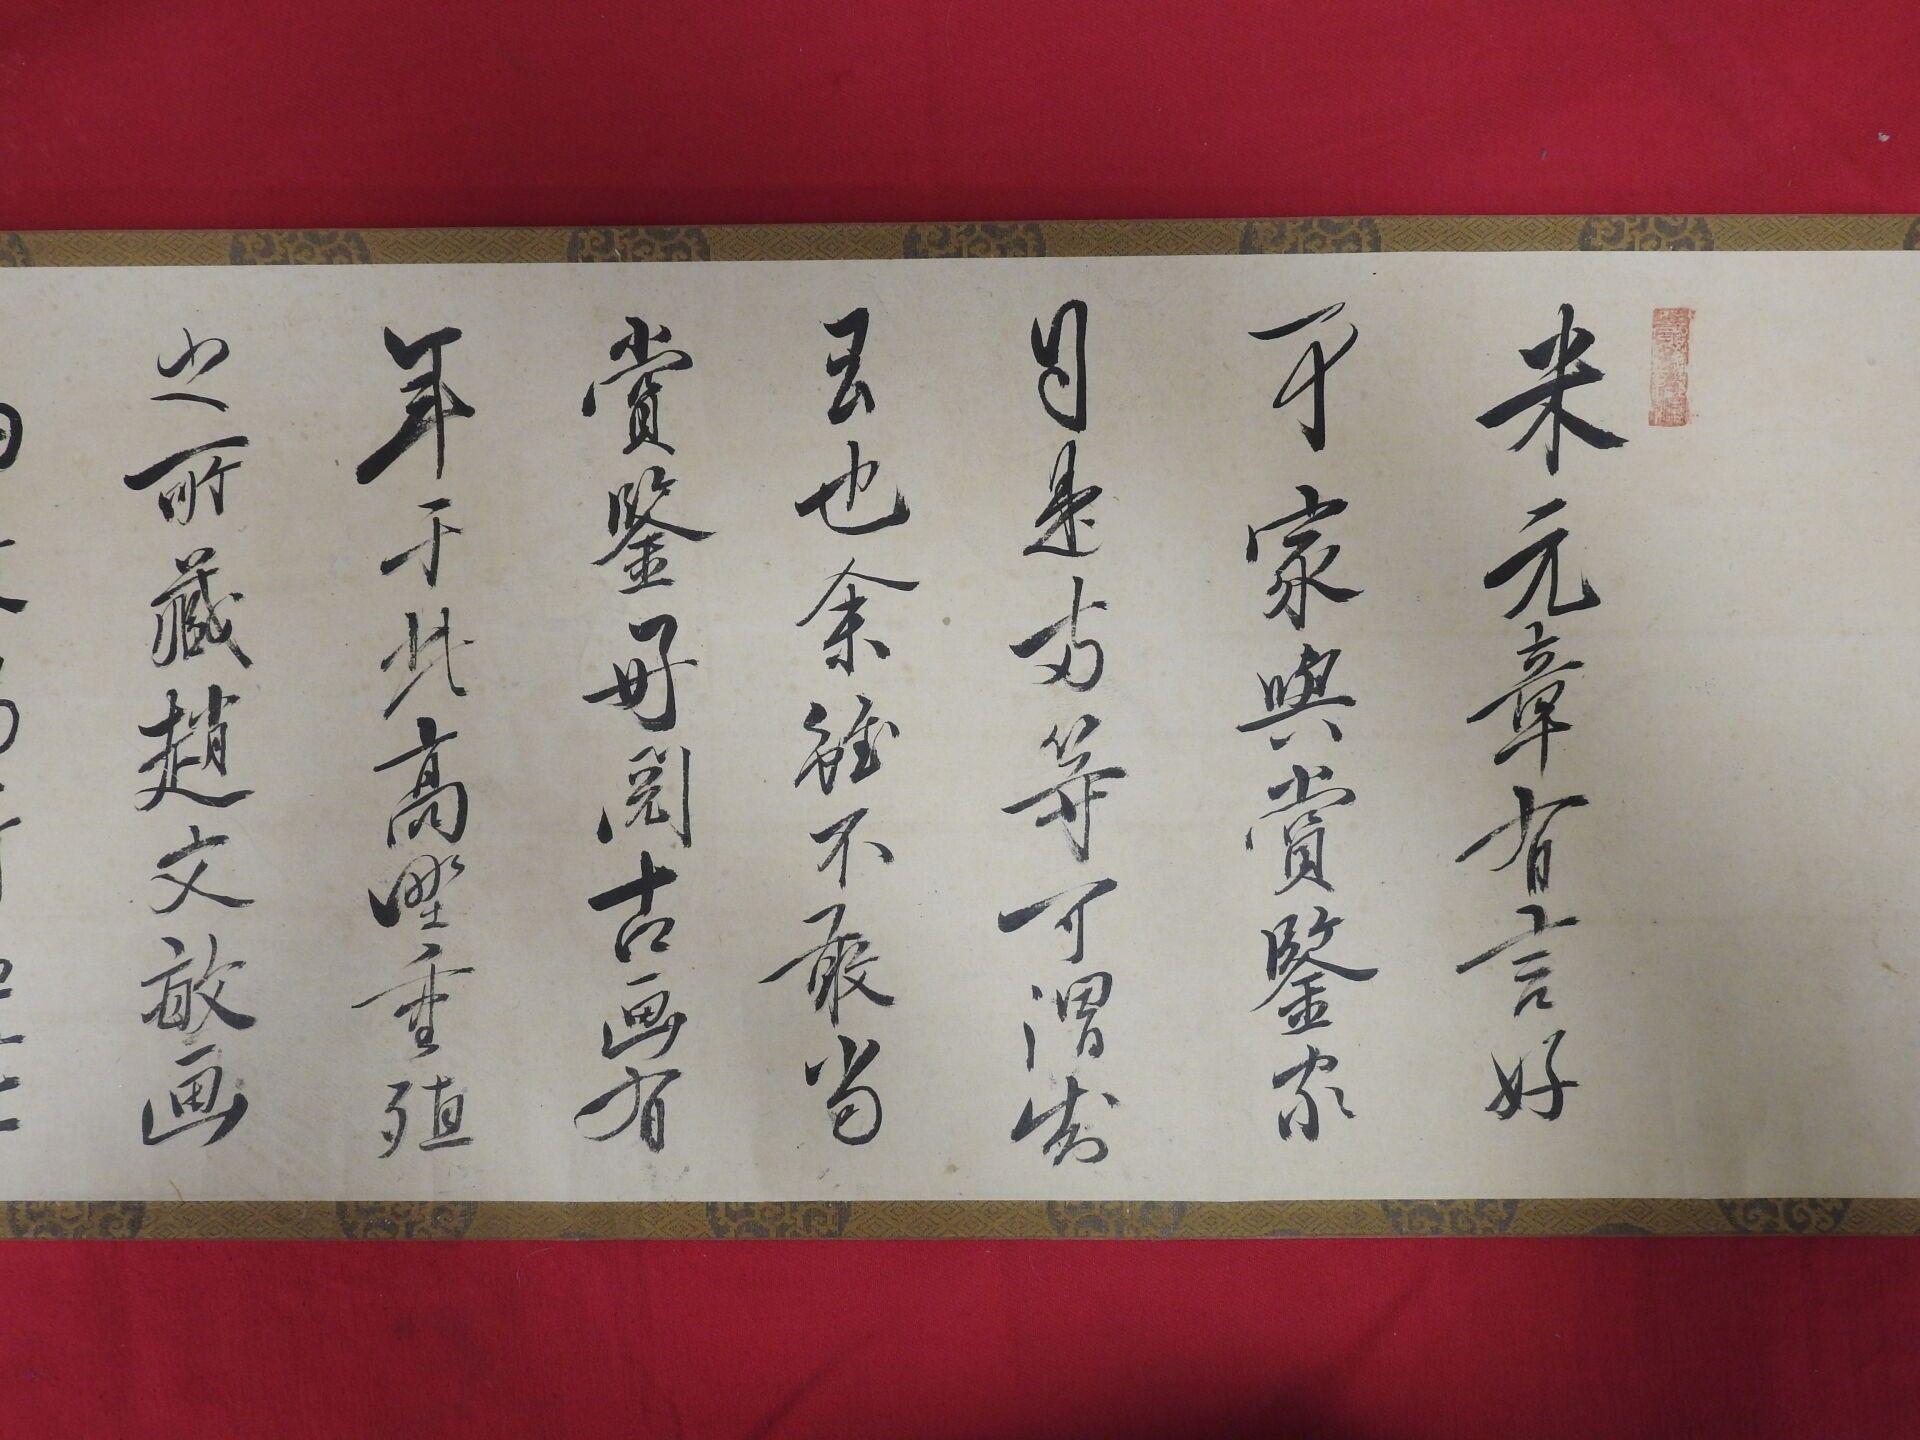 米元章有言好
事家與賞鑒家
自是両等可謂
言也余雖不敢當
賞鑒毎閲古画有
年于此高野重殖
之所藏趙文敏画